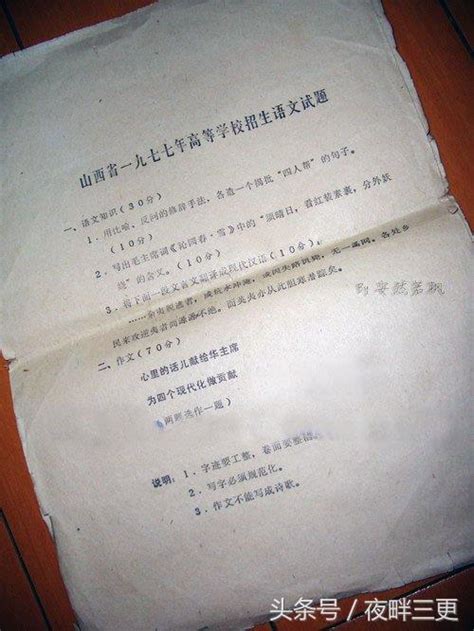 山西省一九七七年高等学校招生语文试题
一、语文知识（30分）
1．用比喻、反问的修辞手法，各造一个揭批“四人帮”的句子。
（10分）
2．写出毛主席词《沁园春·雪》中的“须晴日，看红装素裹，分外妖
娆”的含义。（10分）
3．将下面一段文言文翻译成现代汉语（10分）：
民来攻逆夷者源源不绝。而英夷亦从此胆寒潜踪矣。
二、作文（70分）
心里的话儿献给华主席
为四个现代化做贡献
（两题选作一题）
说明：1．字迹要工整，卷面要整洁。
2．写字必须规范化。
3．作文不能写成诗歌。
头条号 / 夜畔三更